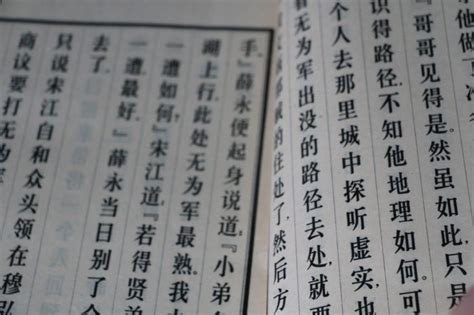 『哥哥见得是。然虽如此,只是
识得路径,不知他地理如何。可
个人去那里城中探听虚实,也
看无为军出没的路径去处,就要
的住处了,然后方
手。』薛永便起身说道:『小弟
湖上行,此处无为军最熟。我
一遭如何?』宋江道:『若得贤
一遭最好。』薛永当日别了
去了。
只说宋江自和众头领在穆弘
商议要打无为